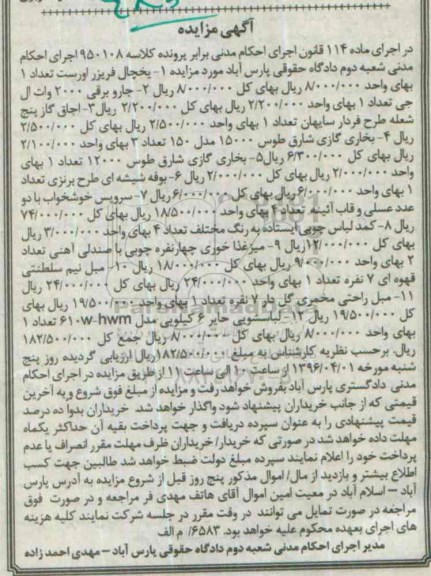 آگهی مزایده
در اجرای ماده ۱۱۴ قانون اجرای احکام مدنی برابر پرونده کلاسه ۹۵۰۱۰۸ اجرای احکام
مدنی شعبه دوم دادگاه حقوقی پارس آباد مورد مزایده ۱- یخچال فریزر اورست تعداد ۱
بهای واحد ۸/۰۰۰/۰۰۰ ریال بهای کل ۸/۰۰۰/۰۰۰ ریال ۲- جارو برقی ۲۰۰۰ وات ال
جی تعداد ۱ بهای واحد ۲/۲۰۰/۰۰۰ ریال بهای کل ۲/۲۰۰/۰۰۰ ریال۳- اجاق گاز پنج
شعله طرح فردار سایهان تعداد ۱ بهای واحد ۲/۵۰۰/۰۰۰ ریال بهای کل ۲/۵۰۰/۰۰۰
ریال ۴- بخاری گازی شارق طوس ۱۵۰۰۰ مدل ۱۵۰ تعداد ۳ بهای واحد ۲/۱۰۰/۰۰۰
ریال بهای کل ۶/۳۰۰/۰۰۰ ریال۵- بخاری گازی شارق طوس ۱۲۰۰۰ تعداد ۱ بهای
واحد ۲/۰۰۰/۰۰۰ ریال بهای کل ۲/۰۰۰/۰۰۰ ریال ۶- بوفه شیشه ای طرح برنزی تعداد
۱ بهای واحد ۶/۰۰۰/۰۰۰ ریال بهای کل ۶/۰۰۰/۰۰۰ ریال ۷- سرویس خوشخواب با دو
عدد عسلی و قاب آئینه تعداد ۴ بهای واحد ۱۸/۵۰۰/۰۰۰ ریال بهای کل ۷۴/۰۰۰/۰۰۰
ریال ۸- کمد لباس چوبی ایستاده به رنگ مختلف تعداد ۴ بهای واحد ۳/۰۰۰/۰۰۰ ریال
بهای کل ۱۲/۰۰۰/۰۰۰ریال ۹- میزغذا خوری چهارنفره چوبی با صندلی آهنی تعداد
۲ بهای واحد ۹/۰۰۰/۰۰۰ ریال بهای کل ۱۸/۰۰۰/۰۰۰ ریال ۱۰- مبل نیم سلطنتی
قهوه ای ۷ نفره تعداد ۱ بهای واحد ۲۴/۰۰۰/۰۰۰ ریال بهای کل ۲۴/۰۰۰/۰۰۰ ریال
۱۱- مبل راحتی مخمری گل دار ۷ نفره تعداد ۱ بهای واحد ۱۹/۵۰۰/۰۰۰ ریال بهای
کل ۱۹/۵۰۰/۰۰۰ ریال ۱۲- لباسشویی حایر ۶ کیلویی مدل ۶۱۰w-hwm تعداد ۱
بهای واحد ۸/۰۰۰/۰۰۰ ریال بهای کل ۸/۰۰۰/۰۰۰ ریال جمع کل ۱۸۲/۵۰۰/۰۰۰
ریال. برحسب نظریه کارشناس به مبلغ ۱۸۲/۵۰۰/۰۰۰ریال ارزیابی گردیده روز پنج
شنبه مورخه ۱۳۹۶/۰۴/۰۱ از ساعت ۱۰ الی ساعت ۱۱ از طریق مزایده در اجرای احکام
مدنی دادگستری پارس آباد بفروش خواهد رفت و مزایده از مبلغ فوق شروع و به آخرین
قیمتی که از جانب خریداران پیشنهاد شود واگذار خواهد شد. خریداران بدوا ده درصد
قیمت پیشنهادی را به عنوان سپرده دریافت و جهت پرداخت بقیه آن حداکثر یکماه
مهلت داده خواهد شد در صورتی که خریدار/ خریداران ظرف مهلت مقرر انصراف یا عدم
پرداخت خود را اعلام نمایند سپرده مبلغ دولت ضبط خواهد شد طالبین جهت کسب
اطلاع بیشتر و بازدید از مال/ اموال مذکور پنج روز قبل از شروع مزایده به آدرس پارس
آباد – اسلام آباد در معیت امین اموال آقای هاتف مهدی فر مراجعه و در صورت فوق
مراجعه در صورت تمایل می توانند در وقت مقرر در جلسه شرکت نمایند کلیه هزینه
های اجرای بعهده محکوم علیه خواهد بود. ۶۵۸۳/ م الف
مدیر اجرای احکام مدنی شعبه دوم دادگاه حقوقی پارس آباد – مهدی احمد زاده